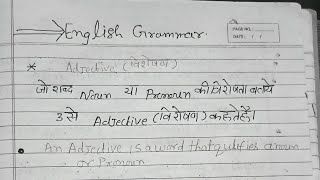 English Grammar.
PAGE NO.:
DATE: / /
* Adjective (विशेषण)
जो शब्द Noun या Pronoun की विशेषता बताये
उसे Adjective (विशेषण) कहते है।
• An Adjective is a word that qualifies a noun
or Pronoun